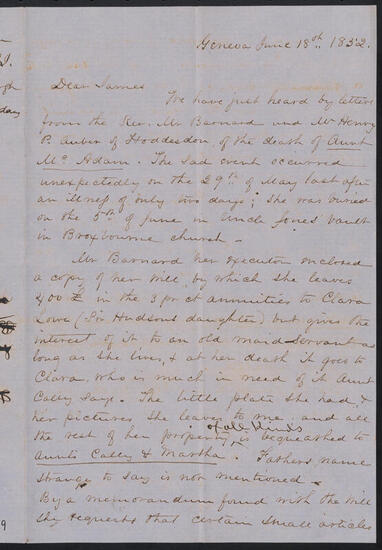 Geneva June 18th. 1852.
Dear James
We have just heard by letters
from the Rev. Mr Barnard and Mr Henry
P. Auber of Hoddesdon, of the death of Aunt
Mc Adam. The sad event occurred
unexpectedly on the 29th of May last after
an illness of only two days; she was buried
on the 5th of June in Uncle Jones' vault
in Broxbourne church.
Mr Barnard her executor enclosed
a copy of her will, by which she leaves
400 £ in the 3 pr ct annuities to Clara
Lowe (Sir Hudson's daughter) but gives the
interest of it to an old maid servant as
long as she lives, & at her death it goes to
Clara, who is much in need of it Aunt
Catty says. The little plate she had, &
her pictures she leaves to me and all
of all kinds
the rest of her property ^ is bequeathed to
Aunts Catty & Martha. Father's name
strange to say is not mentioned.
By a memorandum found with the Will
she requests that certain small articles
day
9